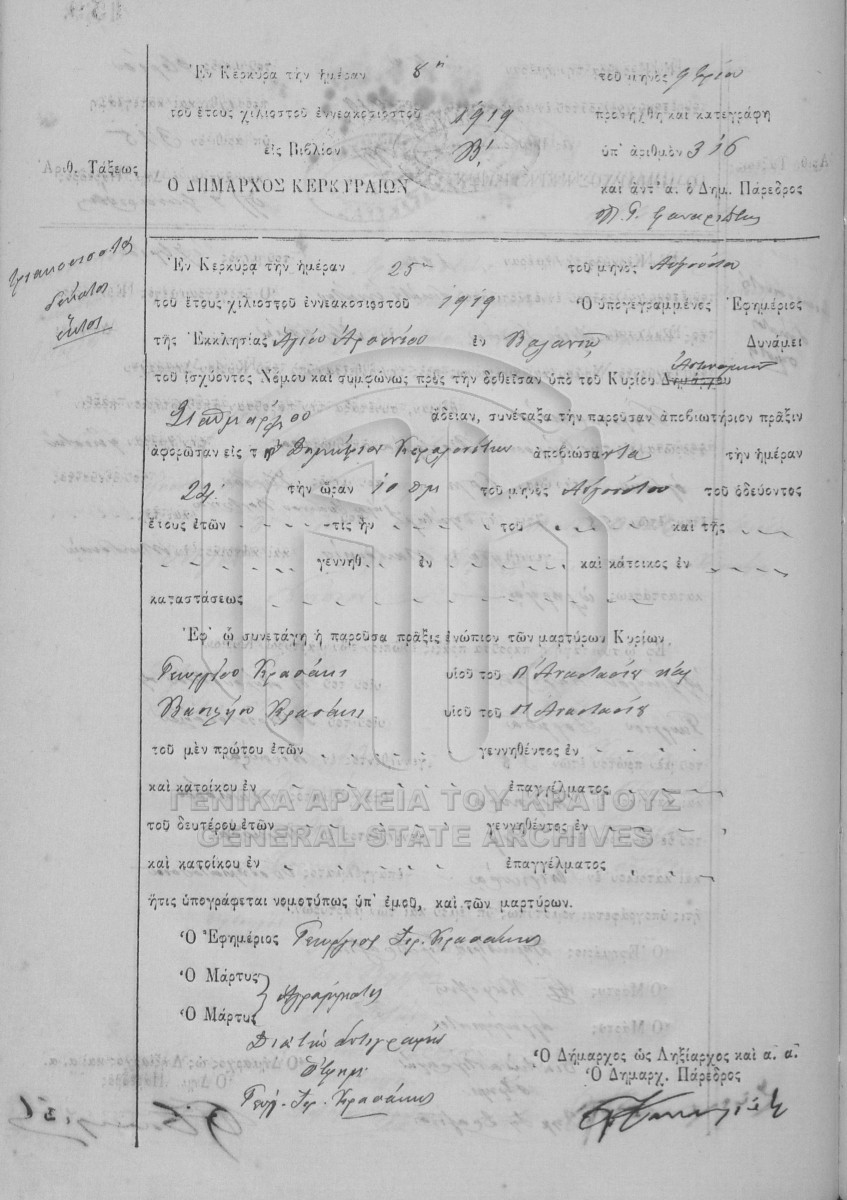 Ἐν Κερκύρᾳ τὴν ἡμέραν 8η τοῦ μηνὸς 9βρίου
τοῦ ἔτους χιλιοστοῦ ἐννεακοσιοστοῦ 1919 προσήχθη καὶ κατεγράφη
εἰς Βιβλίον Β! ὑπ' ἀριθμὸν 316
Ἀριθ. Τάξεως
Ὁ ΔΗΜΑΡΧΟΣ ΚΕΡΚΥΡΑΙΩΝ καὶ ἀντ' α. ὁ Δημ. Πάρεδρος
τριακοσιοστὸν
δέκατον
ἕκτον
Ἐν Κερκύρᾳ τὴν ἡμέραν 25ην τοῦ μηνὸς Αὐγούστου
τοῦ ἔτους χιλιοστοῦ ἐννεακοσιοστοῦ 1919 Ὁ ὑπογεγραμμένος Ἐφημέριος
τῆς Ἐκκλησίας Ἁγίου Ἀρσενίου ἐν Δυνάμει
τοῦ ἰσχύοντος Νόμου καὶ συμφώνως πρὸς τὴν δοθεῖσαν ὑπὸ τοῦ Κυρίου Δημάρχου Ἀστυνομικοῦ
Σταθμάρχου ἄδειαν, συνέταξα τὴν παροῦσαν ἀποβιωτήριον πρᾶξιν
ἀφορῶσαν εἰς τὸν Δημήτριον ἀποβιώσαντα τὴν ἡμέραν
24 τὴν ὥραν 10 πμ τοῦ μηνὸς Αὐγούστου τοῦ ὁδεύοντος
ἔτους ἐτῶν τὶς ἦν τοῦ καὶ τῆς
γεννηθ. ἐν καὶ κάτοικος ἐν
καταστάσεως
Ἐφ' ᾧ συνετάγη ἡ παροῦσα πρᾶξις ἐνώπιον τῶν μαρτύρων Κυρίων
Γεωργίου Κρασάκη υἱοῦ τοῦ Π Ἀναστασίου καὶ
Βασιλείου Κρασάκη υἱοῦ τοῦ Π Ἀναστασίου
τοῦ μὲν πρώτου ἐτῶν γεννηθέντος ἐν
καὶ κατοίκου ἐν ἐπαγγέλματος
ΓΕΝΙΚΑ ΑΡΧΕΙΑ ΤΟΥ ΚΡΑΤΟΥΣ
τοῦ δευτέρου ἐτῶν γεννηθέντος ἐν
GENERAL STATE ARCHIVES
καὶ κατοίκου ἐν ἐπαγγέλματος
ἥτις ὑπογράφεται νομοτύπως ὑπ' ἐμοῦ, καὶ τῶν μαρτύρων.
Ὁ Ἐφημέριος Γεώργιος Ἱερ. Κρασάκης
Ὁ Μάρτυς
ἀγράμματοι
Ὁ Μάρτυς
Διὰ τὴν ἀντιγραφὴν
Ὁ Δήμαρχος ὡς Ληξίαρχος καὶ α. α
Ὁ Δημαρχ. Πάρεδρος
Γεώρ. Ἱερ. Κρασάκης